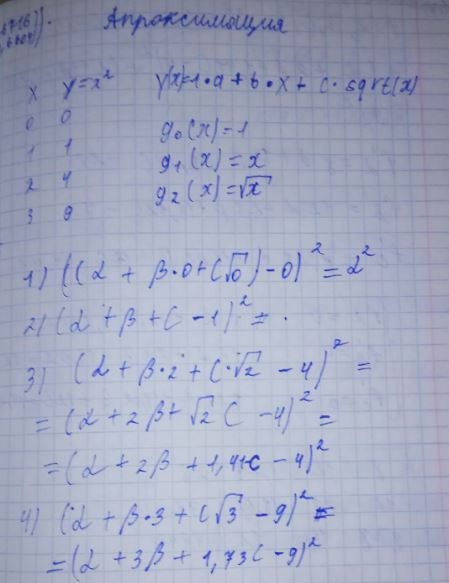 Апроксимация
x y=x² y(x)=1·a+b·x+c·sqrt(x)
0 0
g₀(x)=1
1 1
g₁(x)=x
2 4
g₂(x)=√x
3 9
1) ((α + β·0+C√0)-0)² = α²
2) (α + β + C - 1)² = .
3) (α + β·2 + C·√2 - 4)² =
= (α + 2β + √2 C - 4)² =
= (α + 2β + 1,41C - 4)²
4) (α + β·3 + C√3 - 9)² =
= (α + 3β + 1,73C - 9)²